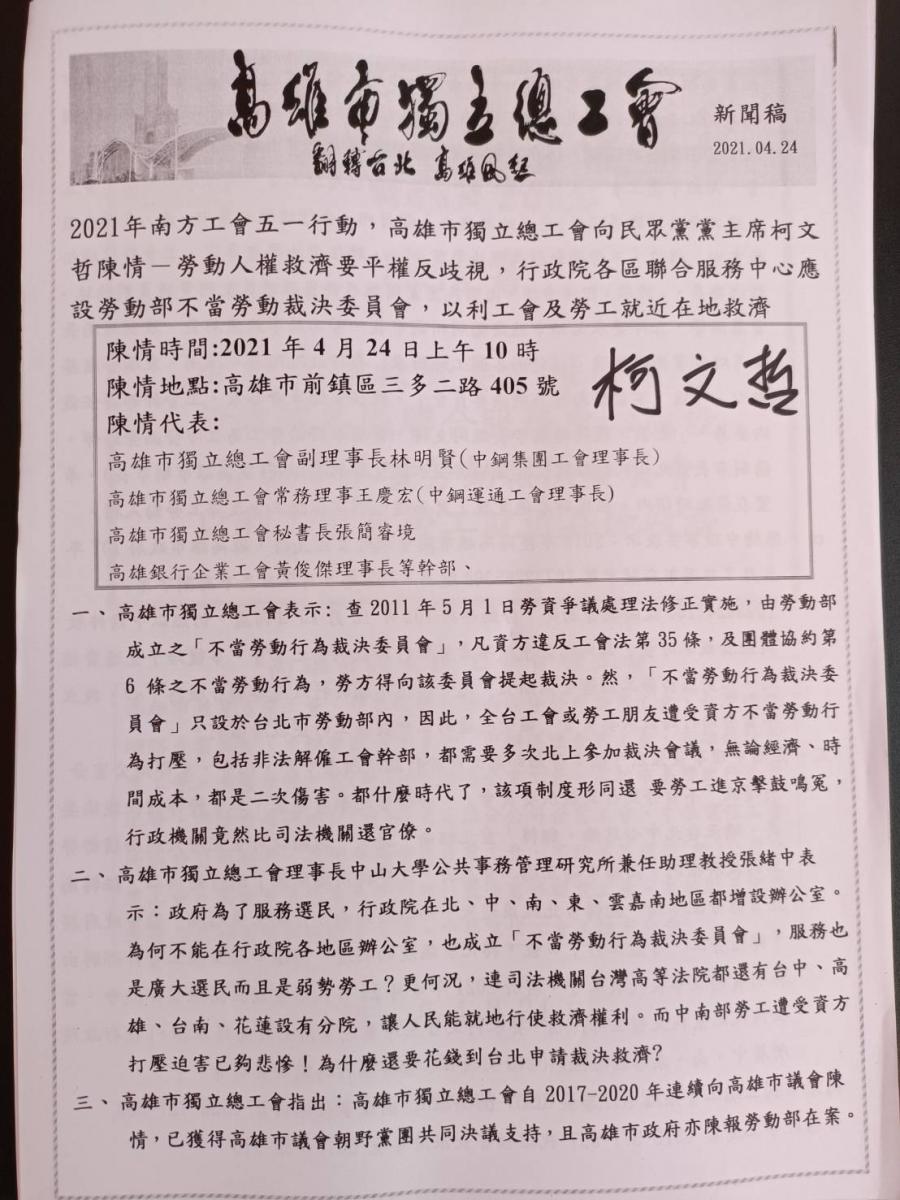 高雄市獨立總工會
翻轉台北 高雄風起
新聞稿
2021.04.24
2021年南方工會五一行動，高雄市獨立總工會向民眾黨黨主席柯文
哲陳情－勞動人權救濟要平權反歧視，行政院各區聯合服務中心應
設勞動部不當勞動裁決委員會，以利工會及勞工就近在地救濟
陳情時間:2021 年 4 月 24 日上午 10 時
陳情地點:高雄市前鎮區三多二路 405 號
柯文哲
陳情代表:
高雄市獨立總工會副理事長林明賢(中鋼集團工會理事長)
高雄市獨立總工會常務理事王慶宏(中鋼運通工會理事長)
高雄市獨立總工會秘書長張簡睿境
高雄銀行企業工會黃俊傑理事長等幹部、
一、高雄市獨立總工會表示: 查 2011 年 5 月 1 日勞資爭議處理法修正實施，由勞動部
成立之「不當勞動行為裁決委員會」，凡資方違反工會法第 35 條，及團體協約第
6 條之不當勞動行為，勞方得向該委員會提起裁決。然，「不當勞動行為裁決委
員會」只設於台北市勞動部內，因此，全台工會或勞工朋友遭受資方不當勞動行
為打壓，包括非法解僱工會幹部，都需要多次北上參加裁決會議，無論經濟、時
間成本，都是二次傷害。都什麼時代了，該項制度形同還 要勞工進京擊鼓鳴冤，
行政機關竟然比司法機關還官僚。
二、高雄市獨立總工會理事長中山大學公共事務管理研究所兼任助理教授張緒中表
示：政府為了服務選民，行政院在北、中、南、東、雲嘉南地區都增設辦公室。
為何不能在行政院各地區辦公室，也成立「不當勞動行為裁決委員會」，服務也
是廣大選民而且是弱勢勞工？更何況，連司法機關台灣高等法院都還有台中、高
雄、台南、花蓮設有分院，讓人民能就地行使救濟權利。而中南部勞工遭受資方
打壓迫害已夠悲慘！為什麼還要花錢到台北申請裁決救濟?
三、高雄市獨立總工會指出：高雄市獨立總工會自 2017-2020 年連續向高雄市議會陳
情，已獲得高雄市議會朝野黨團共同決議支持，且高雄市政府亦陳報勞動部在案。